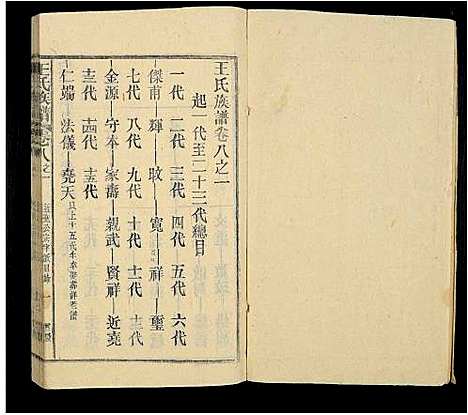 王氏族譜卷八之一
起一代至二十三代總目
一代 二代 三代 四代 五代 六代
傑甫 輝 旼 寬 祥 璽
七代 八代 九代 十代 十一代 十二代
金源 守本 家壽 親武 賢祥 近堯
十三代 十四代 十五代
仁端 法儀 堯天 以上十五代生卒娶葬詳老譜
王氏族譜 卷八之一